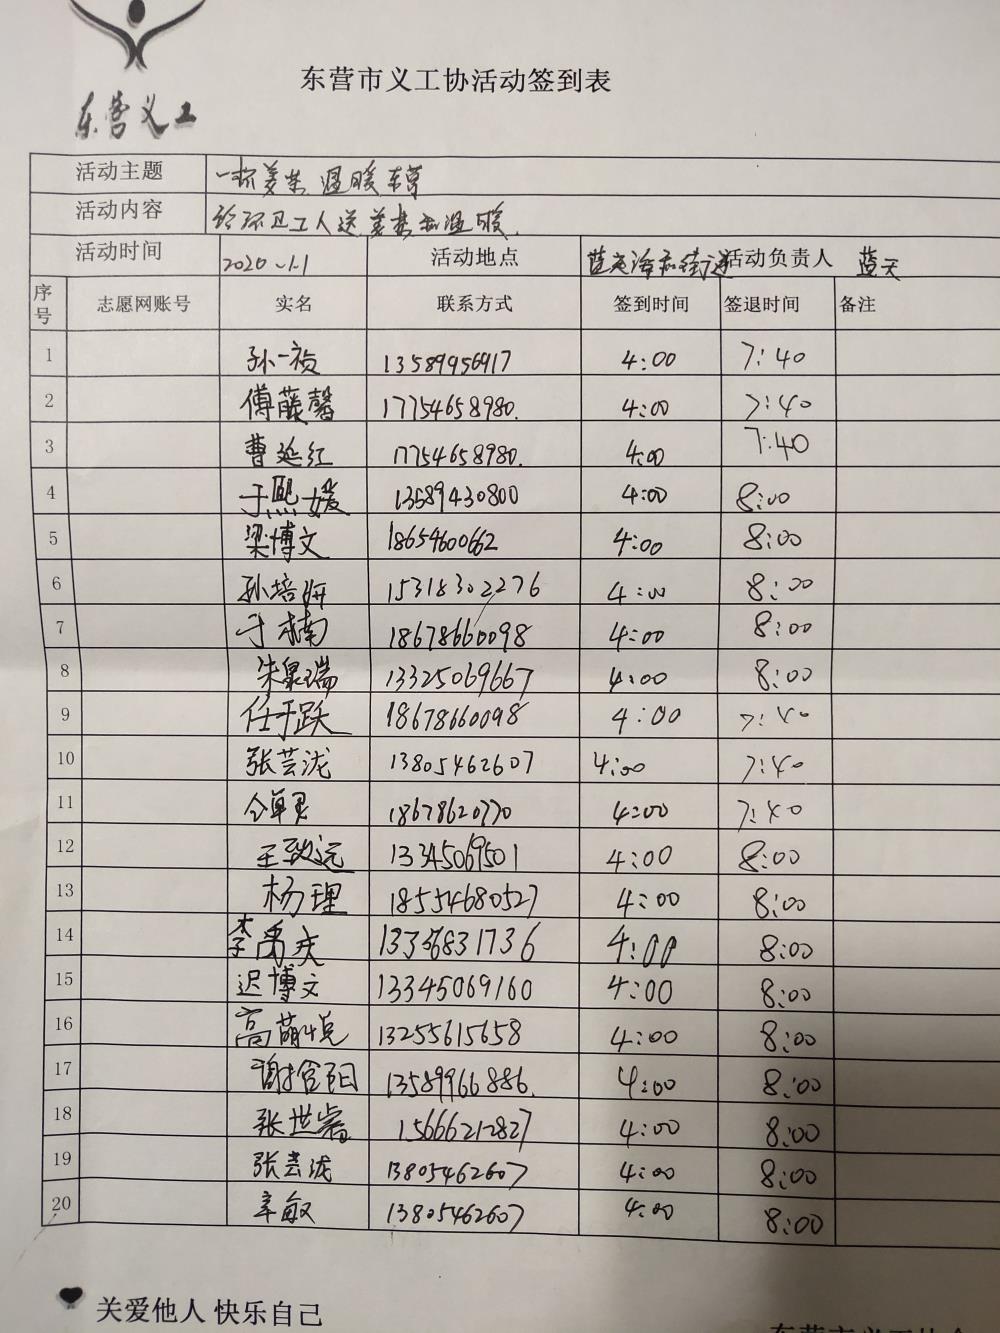 东营义工
东营市义工协活动签到表
活动主题 一杯姜茶 温暖东营
活动内容 给环卫工人送姜茶和温暖
活动时间 2020.1.1 活动地点 活动负责人 蓝天
序号 志愿网账号 实名 联系方式 签到时间 签退时间 备注
1 孙一祯 13589956917 4:00 7:40
2 傅藤馨 17754658980. 4:00 7:40
3 曹延红 17754658980. 4:00 7:40
4 于熙媛 13589430800 4:00 8:00
5 梁博文 18654600662 4:00 8:00
6 孙培妍 15318302276 4:00 8:00
7 于楠 18678660098 4:00 8:00
8 朱泉瑞 13325069667 4:00 8:00
9 任于跃 18678660098 4:00 7:40
10 张芸泷 13805462607 4:00 7:40
11 18678620770 4:00 7:40
12 王致远 13345069501 4:00 8:00
13 杨理 18554680527 4:00 8:00
14 李禹庆 13356831736 4:00 8:00
15 迟博文 13345069160 4:00 8:00
16 高萌悦 13255615658 4:00 8:00
17 谢含阳 13589966886. 4:00 8:00
18 张世睿 15666212827 4:00 8:00
19 张芸泷 13805462607 4:00 8:00
20 辛敏 13805462607 4:00 8:00
关爱他人 快乐自己